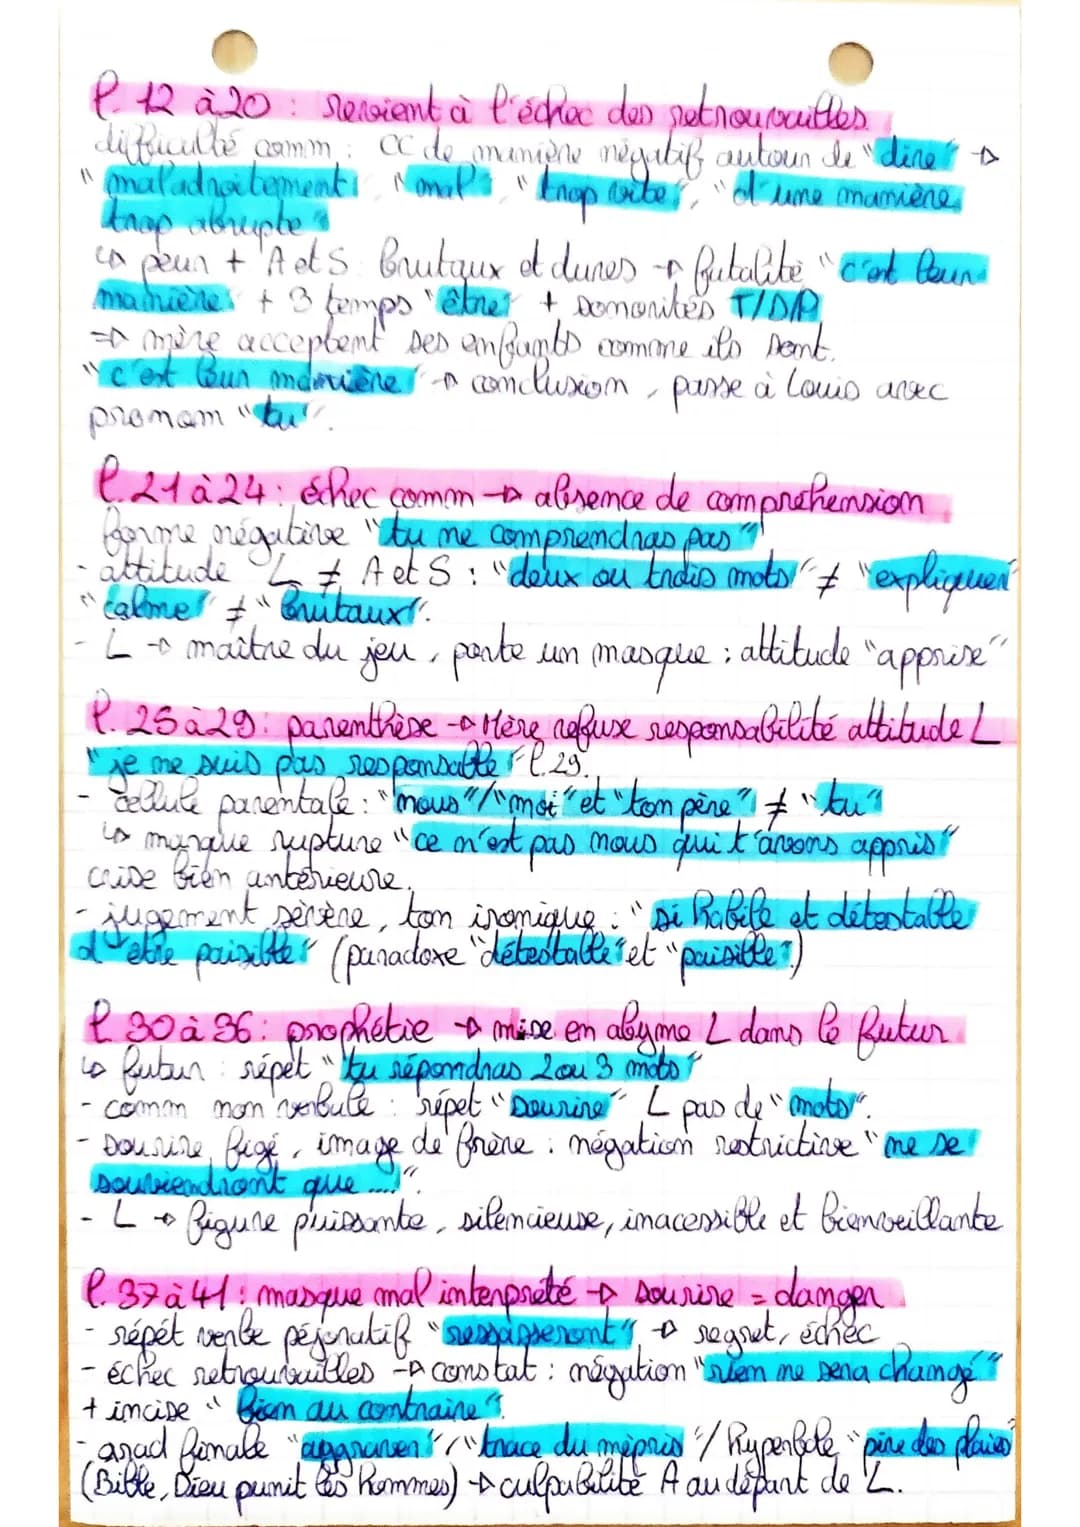 l. 12 à 20 : revient à l'échec des retrouvailles.
difficulté comm : CC de manière négatif autour de "dire" →
"maladroitement", "mal", "trop vite", "d'une manière
trop abrupte"
↳ peur + A et S brutaux et dures → futalité "c'est leur
manière" + 3 temps "être" + sonorités T/D/P
=> mère acceptent ses enfants comme ils sont.
"c'est leur manière" → conclusion, passe à Louis avec
pronom "tu".
l. 21 à 24 : échec comm → absence de comprehension
forme négative "tu ne comprendras pas"
- attitude L ≠ A et S : "deux ou trois mots" ≠ "expliquer"
"calme" ≠ "brutaux".
- L → maître du jeu, porte un masque ; attitude "apprise"
l. 25 à 29 : parenthèse → Mère refuse responsabilité attitude L
"je me suis pas responsable" l. 29.
- cellule parentale : "nous"/"moi" et "ton père" ≠ "tu"
↳ marque rupture "ce n'est pas nous qui t'avons appris"
crise bien antérieure.
- jugement sévère, ton ironique : "si habile et détestable
d'être paisible" (paradoxe "détestable" et "paisible".)
l. 30 à 36 : prophétie → mise en abyme L dans le futur.
↳ futur : répét "tu répondras 2 ou 3 mots"
- comm non verbale : répet "sourire" L pas de "mots".
- sourire figé, image de frère : négation restrictive "ne se
souviendront que ....".
- L → figure puissante, silencieuse, inacessible et bienveillante
l. 37 à 41 : masque mal interprété → sourire = danger
- répét verbe péjoratif "ressasseront" → regret, échec
- échec retrouvailles → constat : négation "rien ne sera changé"
+ incise "bien au contraire".
- grad finale "aggraver"/"trace du mépris"/ hyperbole "pire des plaies"
(Bible, Dieu punit les hommes) → culpabilité A au départ de L.